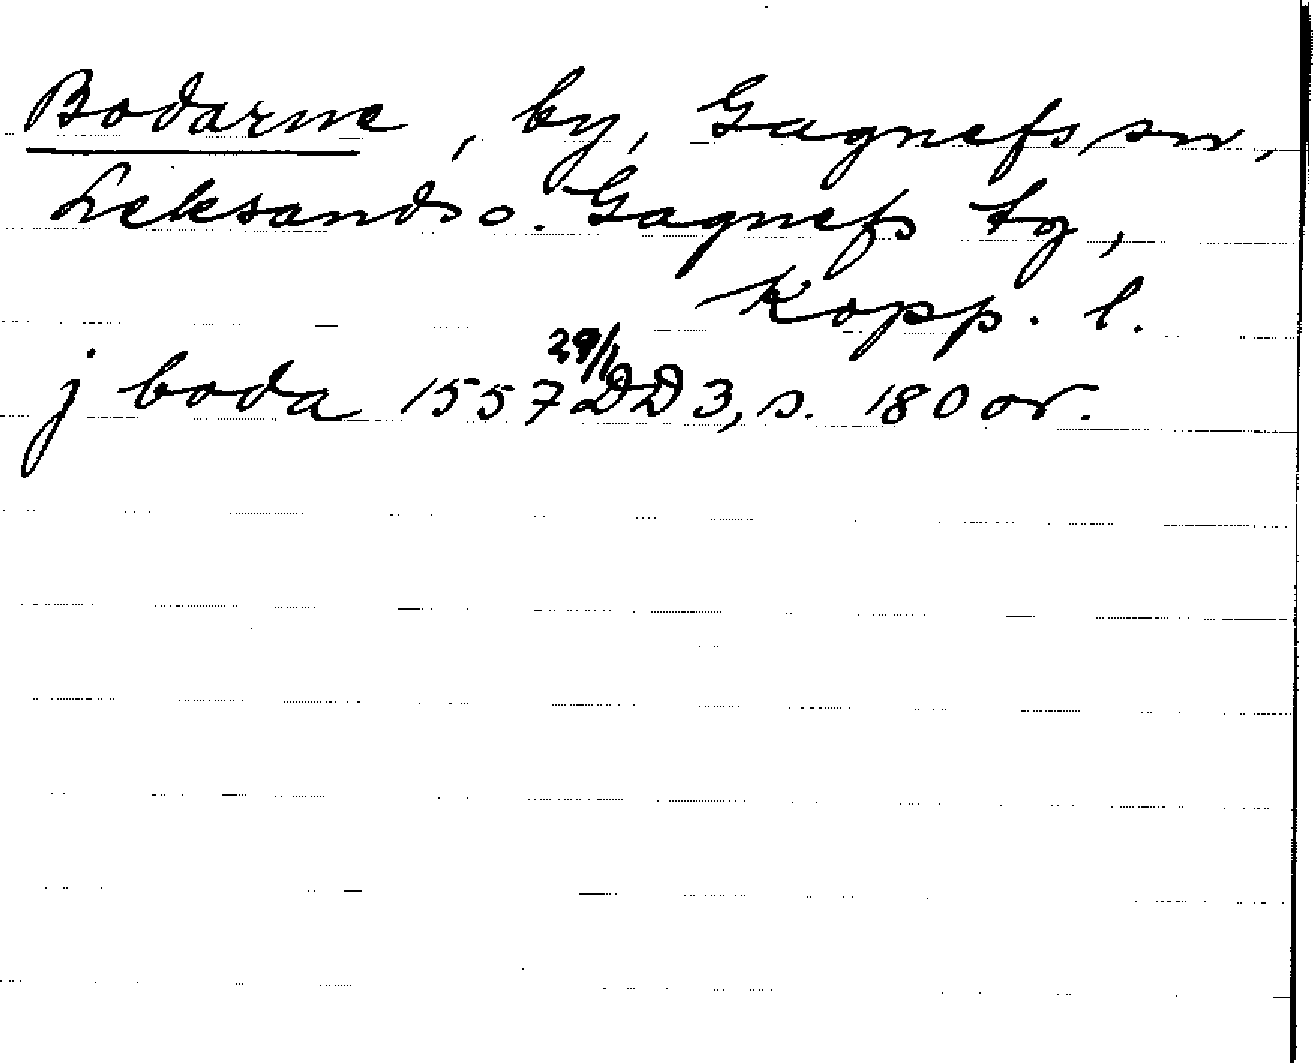 Bodarne, by, Gagnefs sn,
Leksands o. Gagnefs tg,
Kopp. l.
j boda 1557 29/1 DD 3, s. 180 or.